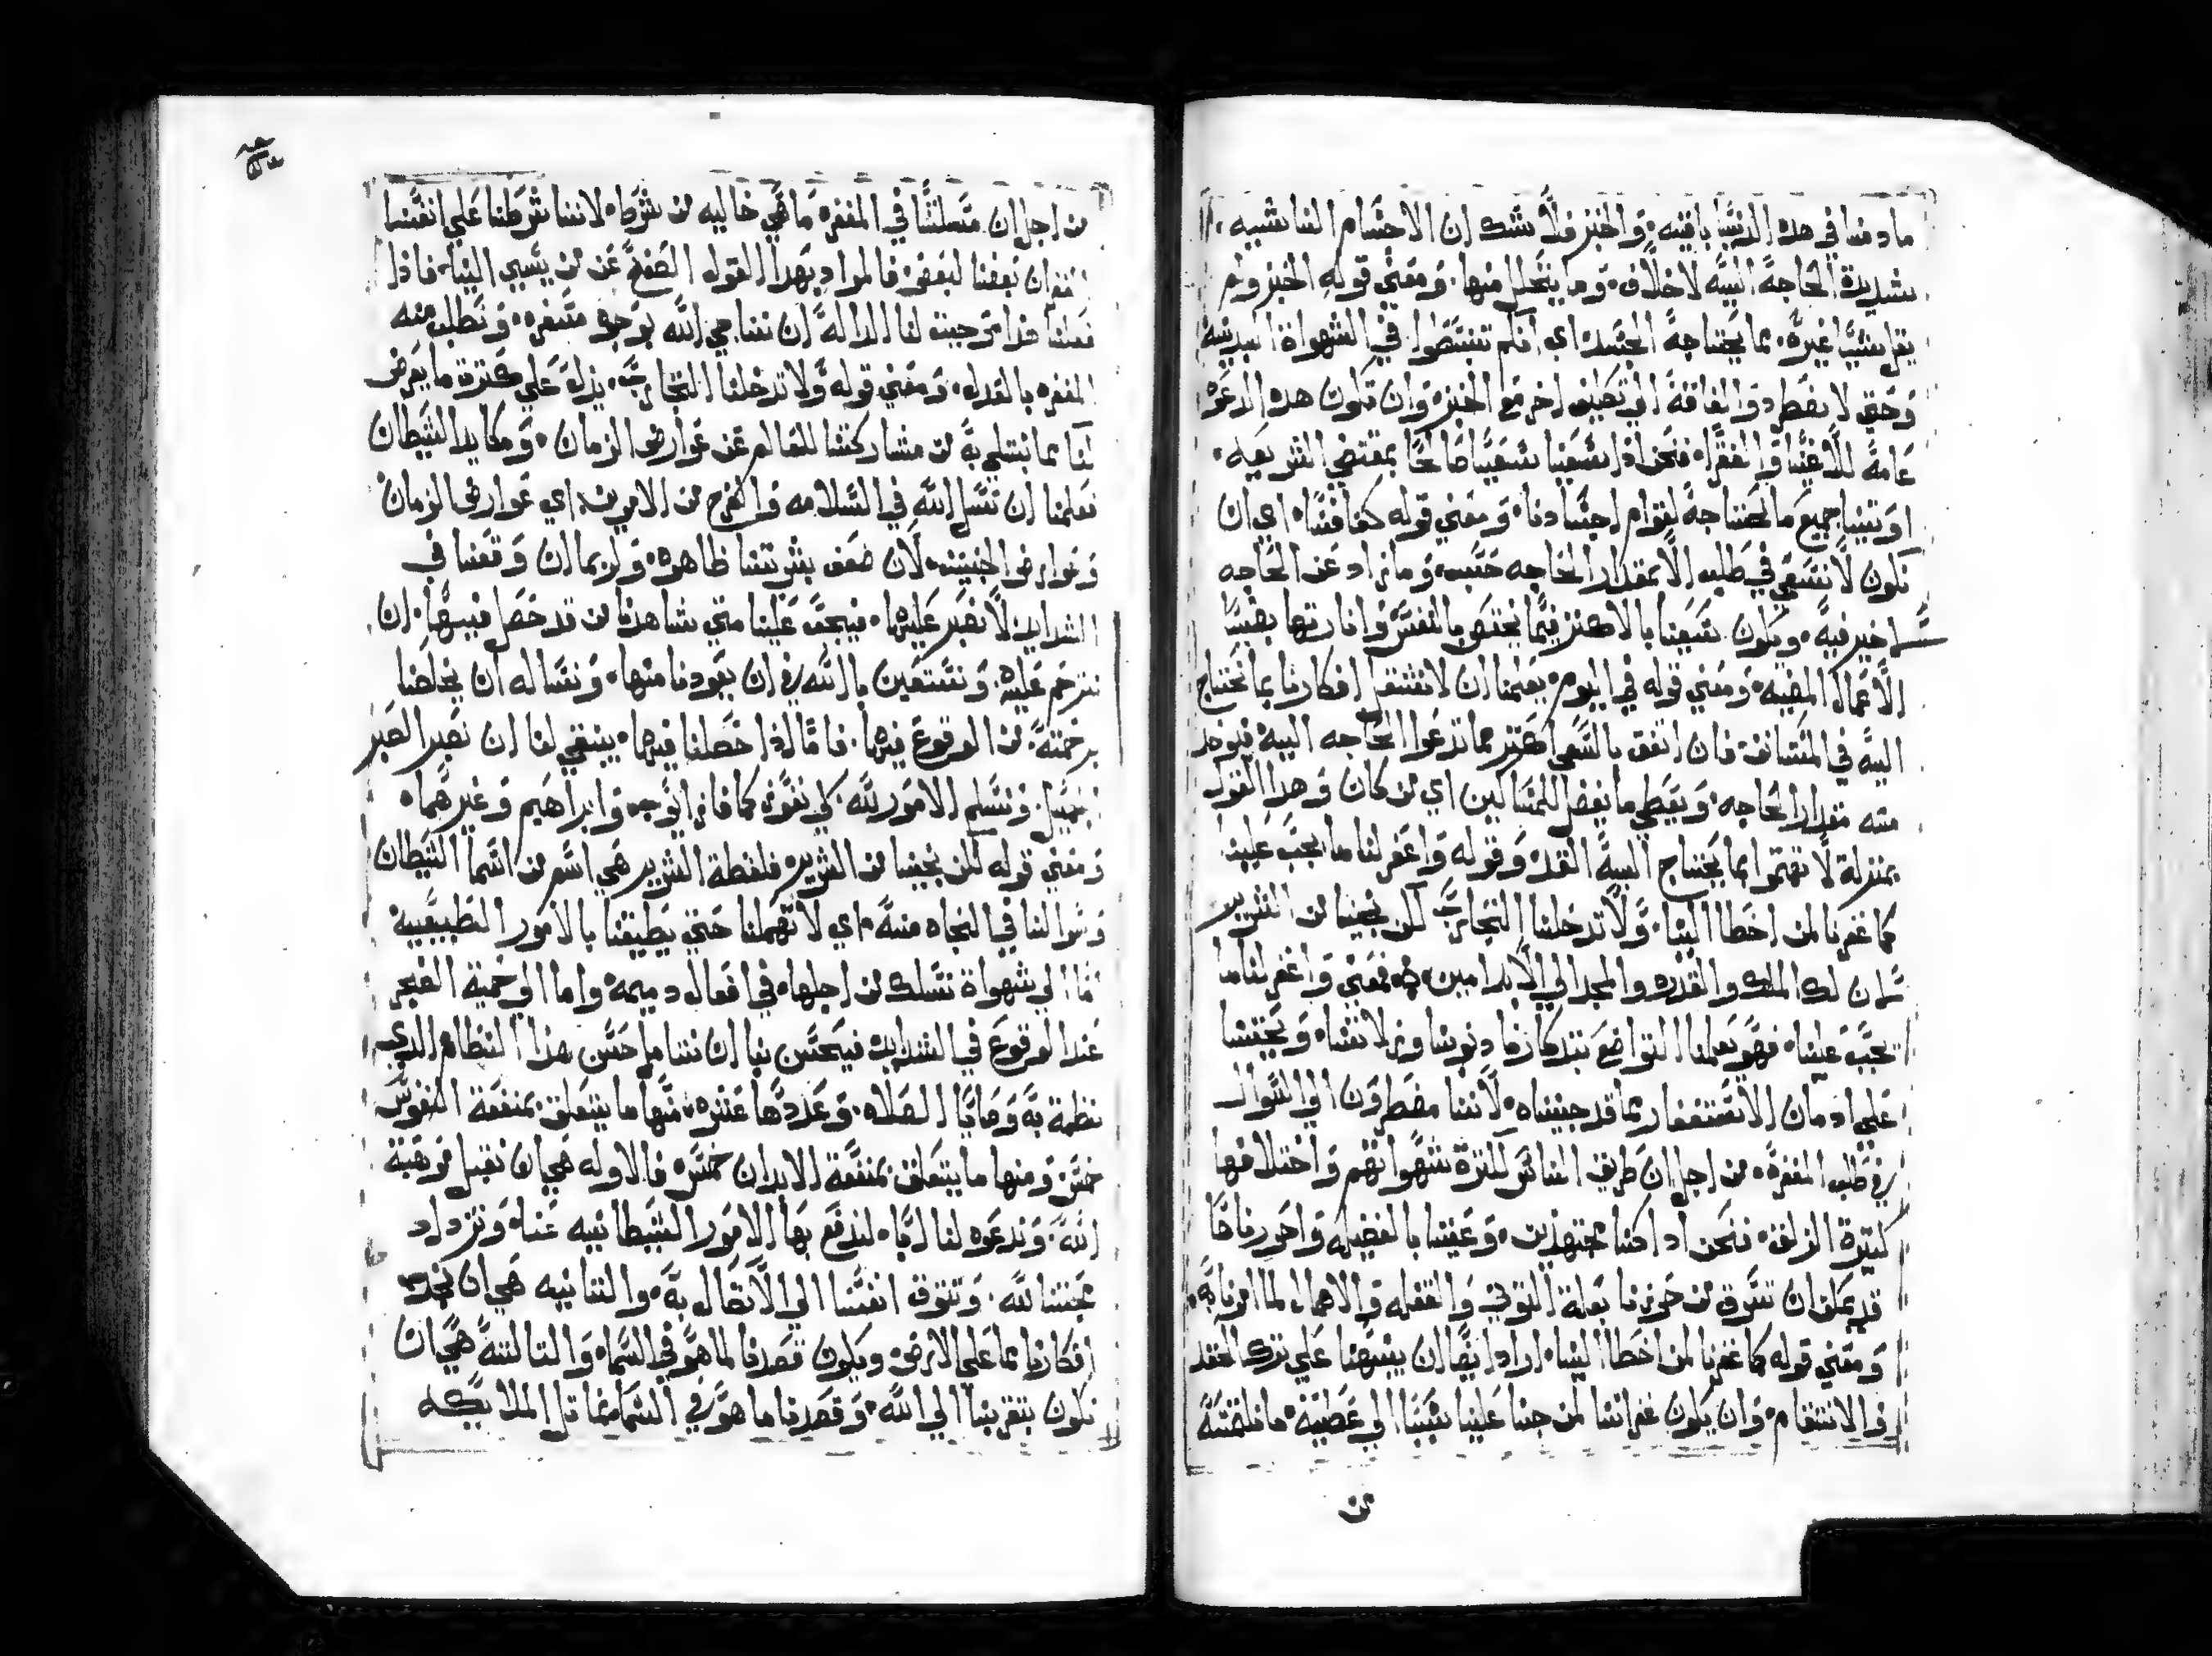 ما دمنا في هده الدنيا باقيه. والخبز فلا شك ان الاجسام الناشيه
شديدة الحاجة اليه لاخلاف. وما ينحل منها. ومعني قوله الخبز ولم
يقل شيا غيره. مما يحتاجة الجسد اي فلم تنبسطوا في الشهواة البدنية
وحق لا نضطر والفاقة الي تطلب اخر مع الخبز. وان تكون هده الدعوه
عامة للاغنيا والفقرا. فنحن ادا سعينا سعيا صالحا بمقتضي الشريعه.
اوتينا جميع ما نحتاجة لقوام اجسادنا. ومعني قوله كفافنا. اي ان
نكون لا نسعي في طلب الا بمقدار الحاجه حسب. وما زاد عن الحاجه
لا خير فيه. ويكون تعبنا بالاكتر فيما يختص بالنفس وانارتها بضيا
الاعمال المضيه. ومعني قوله في اليوم. يعلمنا ان لا نشغل افكارنا بما نحتاج
اليه في المستانف. فان اتفق بالسعي اكتر مما تدعوا الحاجه اليه فيوخد
منه مقدار الحاجه. ويعطي ما يفضل للمساكين اي من كان وهدا القول
بمنزلة لا تهتموا بما يحتاج اليه الغد. وقوله واغفر لنا ما يجب علينا
كما غفرنا لمن اخطا الينا. ولا تدخلنا التجارب لكن نجينا من الشرير
لان لك الملك والقدره والمجد الي الابد امين. فمعني واغفر لنا ما
يجب علينا. فهو يعلمنا التواضع بتدكارنا دنوبنا وزلاتنا. ويحتنا
علي ادمان الاستغفار مما قد جنيناه. لاننا مضطرون الي السوال
في طلب المغفرة. من اجل ان طريق الناس لكترة شهواتهم واختلافها
كتيرة الزلق. فنحن ادا كنا مجتهدين. وعنينا بالفضيله واحورناها
قد يمكن ان تسرق من حوزنا بعلة التوني والغفله والاهمال لما امرنا به.
ومعني قوله كما غفرنا لمن اخطا الينا. اراد ايضا ان ينبهنا علي ترك الحقد
والانتقام. وان يكون غفراننا لمن جنا علينا سببا الي عطية. ما نلتمسة
من
من اجل ان مسلتنا في المغفره ما هي خاليه من شرط. لاننا شرطنا علي انفسنا
بعضنا لبعض فالمراد بهدا القول الصفح عن من يسي الينا. فادا
فعلنا هدا توجبت لنا الداله ان نناجي الله بوجه مسفره. ونطلب منه
المغفره بالعدله. ومعني قوله ولا تدخلنا التجارب. يدل علي كترة ما يعرض
لنا مما نبتلي به من مشاركتنا للعالم عن عوارض الزمان. ومكايد الشيطان
يعلمنا ان نسل الله في السلامه والفرج من الامرين. اي عوارض الزمان
وعوارض الخبيت. لان ضعف بشريتنا ظاهره. ولربما ان وقعنا في
الشدايد لا نصبر عليها. فيجب علينا متي شاهدنا من قد حصل فيها. ان
نترحم عليه. ونستعين بالله في ان يعودنا منها. ونساله ان يخلصنا
برحمته. من الوقوع فيها. فاما ادا حصلنا فيها. ينبغي لنا ان نصبر الصبر
الجميل. ونسلم الامور لله. كي نفوز كما فاز ايوب وابراهيم وغيرهما.
ومعني قوله لكن نجينا من الشرير. فلفظة الشرير هي اسم من اسما الشيطان
وسوالنا في النجاه منه. اي لا تهملنا حتي يطيقنا بالامور الطبيعيه
اما الي شهواة نسلك من اجلها في افعال دميمه. واما الي وخمية الضجر
عند الوقوع في الشدايد فيحسن بنا ان نتامل حسن هدا النظام الدي
نظمة به وصايا الصلاه. وعددها عشره. منها ما يتعلق بمنفعة النفوس
خمس ومنها ما يتعلق بمنفعة الابدان خمس. فالاوله هي ان نقبل موهبة
الله. وندعوه لنا ابا. لندفع بها الامور الشيطانيه عنا. ونزداد
محبتنا لله. وتتوق انفسنا الي الاتصال به. والتانيه هي ان نجدب
افكارنا مما علي الارض. ويكون قصدنا لما هو في السما. والتالتة هي ان
نكون بتقربنا الي الله. وقصدنا ما هو في السما نماتل الملايكه